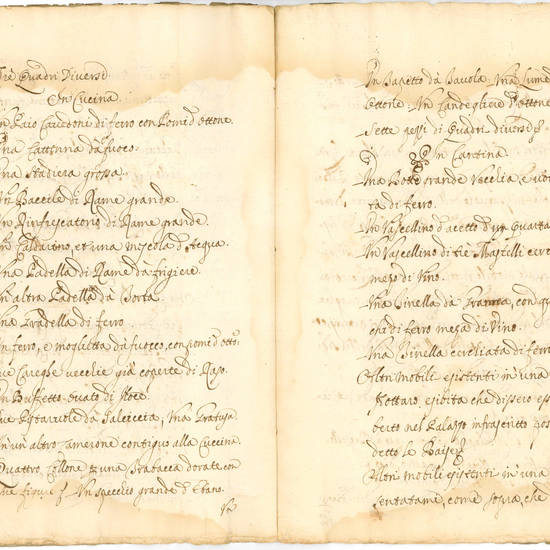 Tre Quadri Diversi
In Cucina.
Un Paio Cavedoni di ferro con Pomi d'ottone.
Una Cattenna da fuoco.
Una Stadiera grossa.
Un Bacile di Rame grande.
Un Rinfrescatorio di Rame grande.
Un Caldarino, et una Mescola d'Acqua.
Una Padella di Rame da frigiere.
Un altra Padella da Torta.
Una Gradella di ferro
Un ferro, e moglietta da fuoco, con pomi d'otto:
Due Careghe vecchie già coperte di Raso.
Un Buffetto ovato di Noce.
Due da Salciccia, Una Gratuga.
In un altro Camerone contiguo alla Cuccina.
Quattro Collone di una Trabacca dorate con
Due figure Un specchio grande d'Ebano.
Un Bazetto da Tavola. Una Lume
Ottone. Un Candegliere d'ottone
Sette pezzi di Quadri diversi
In Cantina.
Una Botte grande Vecchia, e
ta di ferro.
Un Vascellino d'accetto d'una Quarta
Un Vascellino di trè Mastelli
mezo di Vino.
Una Pinella da con
chi di ferro meza di Vino.
Una Pinella cerchiata di ferro
Altri mobili esistenti in una
Nottaro, esibita che disse
nel Palazzo infrascritto pos
detto le
Altri mobili esistenti in una
sentatami, come sopra, che